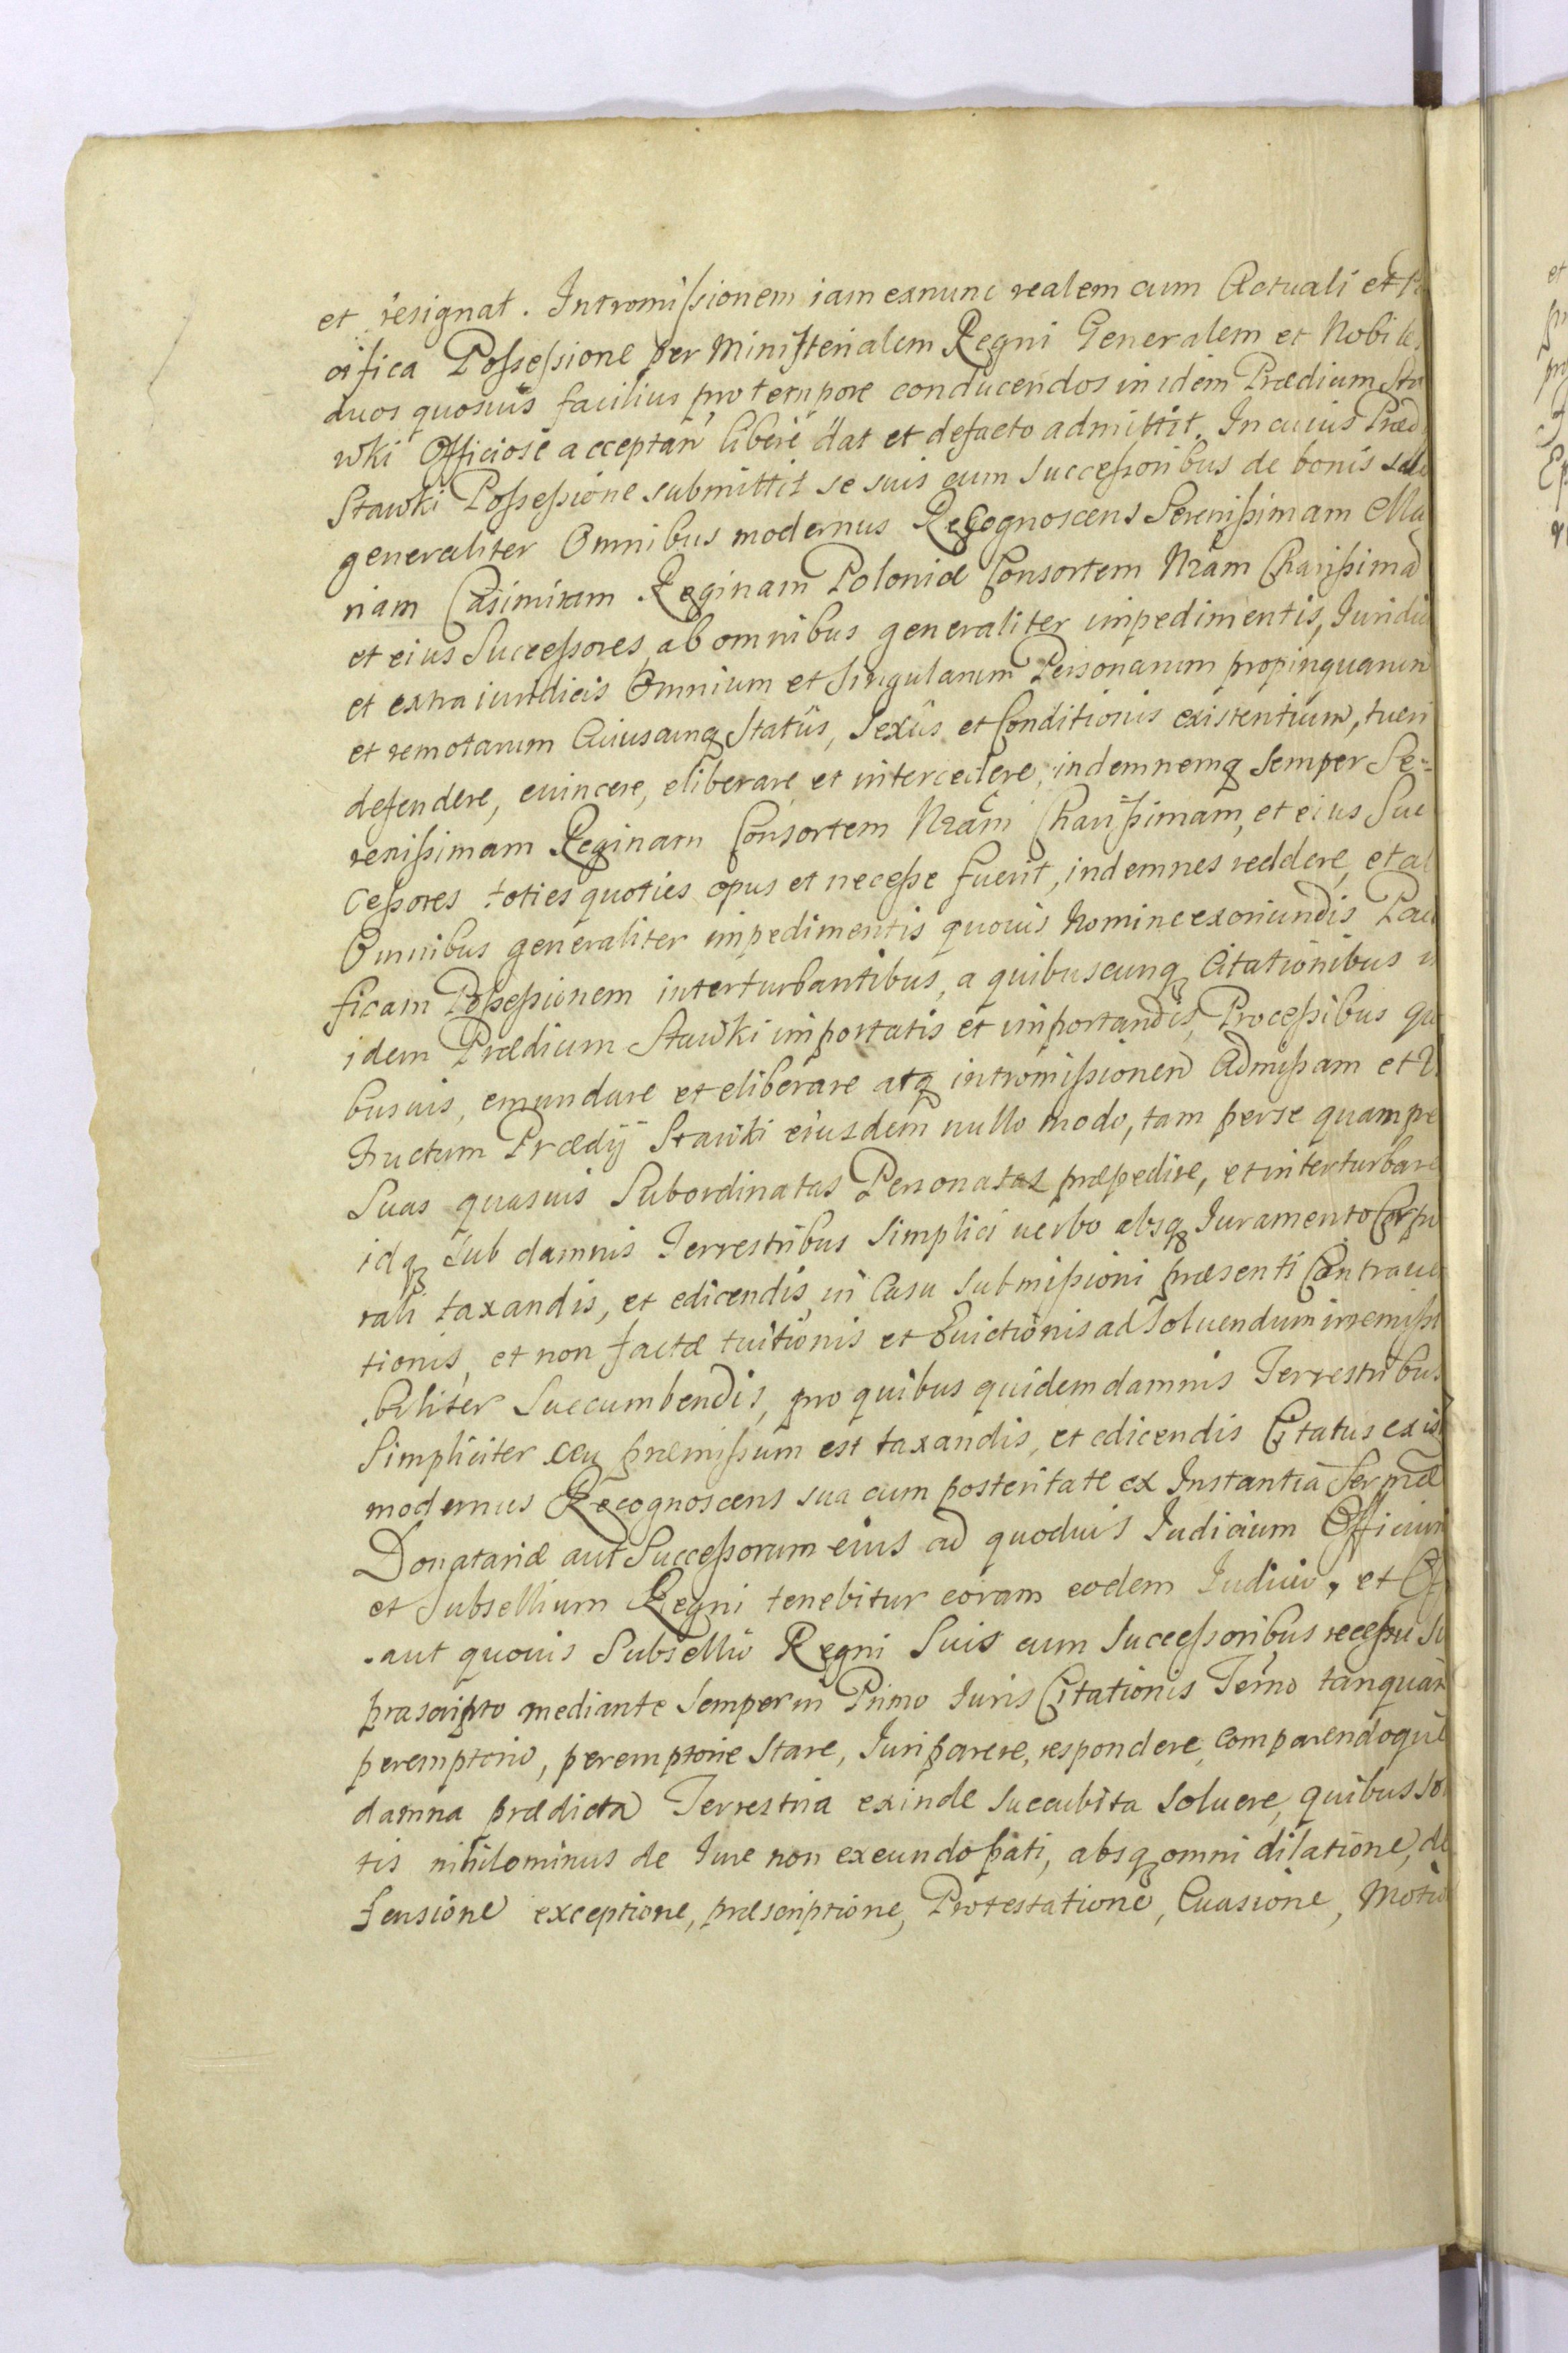 et resignat. Intromissionem iam exnunc realem cum Actuali et
cifica Possessione per Ministerialem Regni Generalem et Nobiles
duos quosuis facilius pro tempore conducendos in idem Prædium Sta
wki Officiose acceptan̄ libere dat et defacto admittit. In cuius Præd
Stawki Possessione submittit se suis cum successoribus de bonis suis
generaliter Omnibus modernus Recognoscens Serenissimam Ma
riam Casimiram Reginam Poloniæ Consortem Nrām Charissimā
et eius Successores, ab omnibus generaliter impedimentis, Iuridic
et extraiuridicis Omnium et Singularum Personarum propinquarum
et remotarum Cuiuscunq Statûs, Sexûs et Conditionis existentium, tueri
defendere, euincere, eliberare et intercedere, indemnemq semper Se=
renissimam Reginam Consortem Nrām Charissimam, et eius Suc
cessores toties quoties opus et necesse fuerit, indemnes reddere, et al
Omnibus generaliter impedimentis quouis Nomine exoriundis Paci
ficam Possessionem interturbantibus, a quibuscunq Citationibus in
idem Prædium Stawki importatis et importandis, Processibus qui
busuis, emundare et eliberare atq intromissionem Admissam et V
fructum Prædÿ Stawki eiusdem nullo modo, tam per se quam per
Suas quasuis Subordinatas Personatas præpedire, et interturbare
idq sub damnis Terrestribus Simplici uerbo absq Iuramento Corpo
rali taxandis, et edicendis, in Casu Submissioni præsenti Contraue
tionis, et non factæ tuitionis et Euictionis ad Soluendum irremissi
biliter Succumbendis, pro quibus quidem damnis Terrestribus
Simpliciter ceu præmissum est taxandis, et edicendis Citatus exis
modernus Recognoscens sua cum posteritate ex Instantia Sermæ
Donatariæ aut Successorum eius ad quoduis Iudicium Officium
et Subsellium Regni tenebitur coram eodem Iudicio, et Off
aut quouis Subsellio Regni Suis cum Successoribus recessu su
præscripto mediante Semper in Primo Iuris Citationis Termo tanquam
peremptorio, peremptorie Stare, Iuri parere, respondere, comparendoque
damna prædicta Terrestria exinde Succubita Soluere, quibus so
tis nihilominus de Iure non exeundo pati, absq omni dilatione, de
fensione exceptione, præscriptione, Protestatione, Euasione, Motio